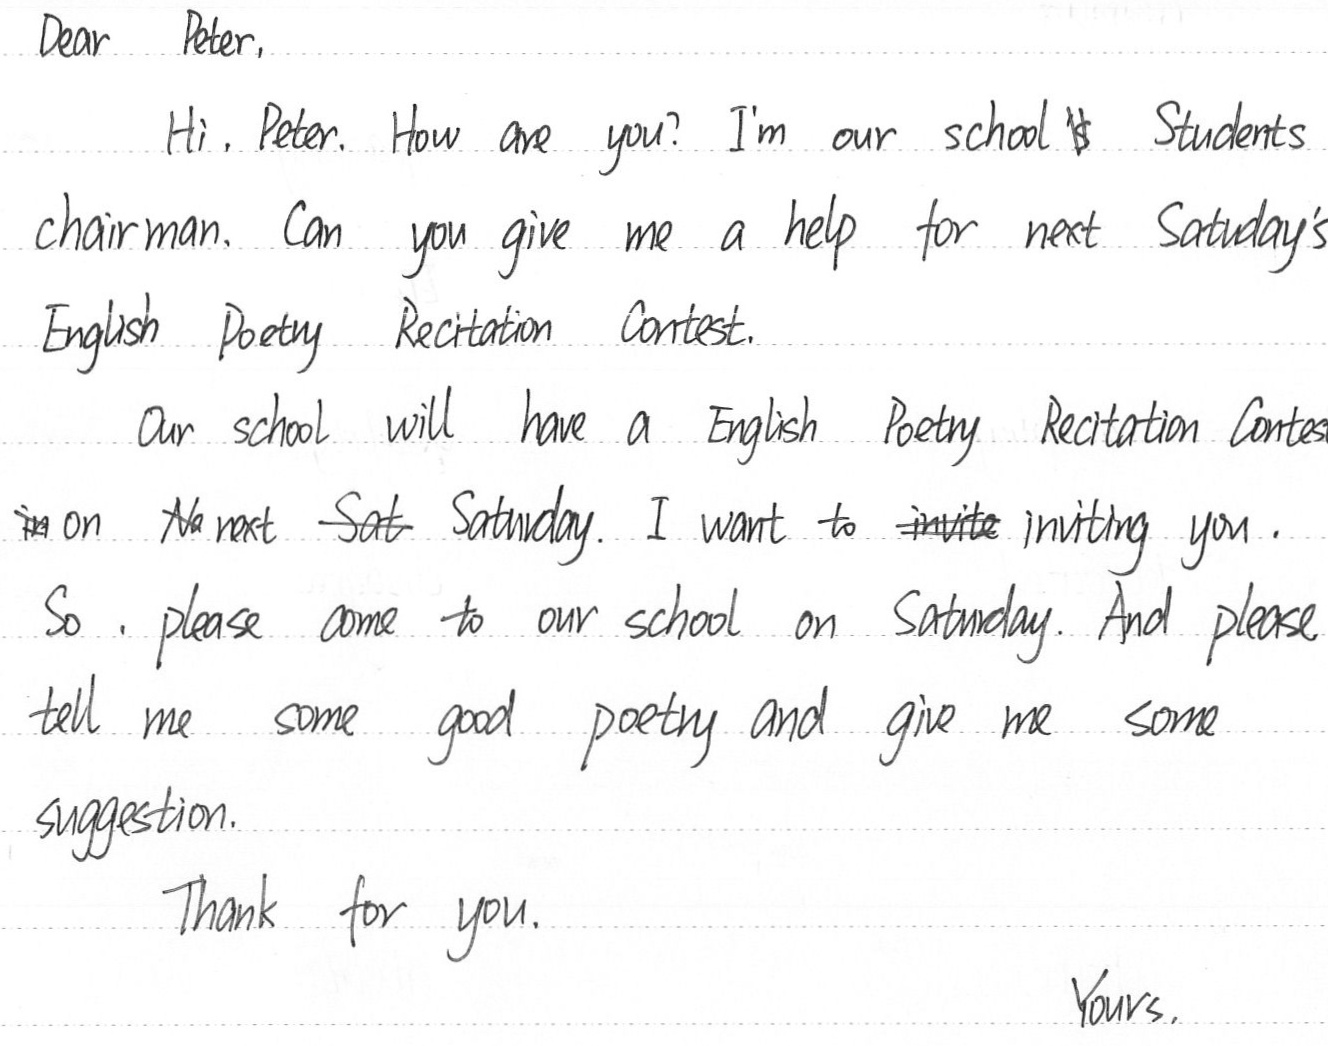 Dear Peter,
Hi, Peter. How are you? I'm our school's Students
chairman. Can you give me a help for next Satuday's
English Poetry Recitation Contest.
Our school will have a English Poetry Recitation Contes
in on Ne next Sat Saturday. I want to invite inviting you.
So, please come to our school on Saturday. And please
tell me some good poetry and give me some
suggestion.
Thank for you.
Yours,